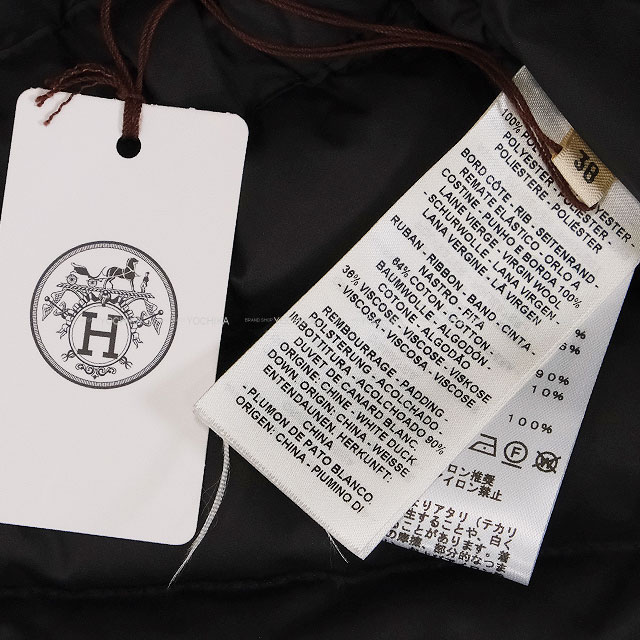 H
YOCHIYA
BRAND SHOP
38
100% POLYESTER
POLYESTER - POLYESTER -
POLIÉSTERE - POLIÉSTER
BORD CÔTE - RIB - SEITENRAND -
REMATE ELÁSTICO - ORLO A
COSTINE - PUNHO E BORDA 100%
LAINE VIERGE - VIRGIN WOOL
- SCHURWOLLE - LANA VIRGEN -
LANA VERGINE - LÃ VIRGEM
RUBAN - RIBBON - BAND - CINTA -
NASTRO - FITA
64% COTON - COTTON -
BAUMWOLLE - ALGODÓN -
COTONE - ALGODÃO
36% VISCOSE - VISCOSE - VISKOSE
- VISCOSA - VISCOSA - VISCOSE
REMBOURRAGE - PADDING -
POLSTERUNG - ACOLCHADO -
IMBOTTITURA - ACOLCHOADO 90%
DUVET DE CANARD BLANC,
ORIGINE: CHINE - WHITE DUCK
DOWN, ORIGIN: CHINA - WEISSE
ENTENDAUNEN HERKUNFT:
CHINA
- PLUMON DE PATO BLANCO,
ORIGEN: CHINA - PIUMINO DI
%
%
90%
10%
100%
ロン推奨
イロン禁止
よりアタリ（テカリ
生することや、白く
ことがあります。着
の腰、部分のつま